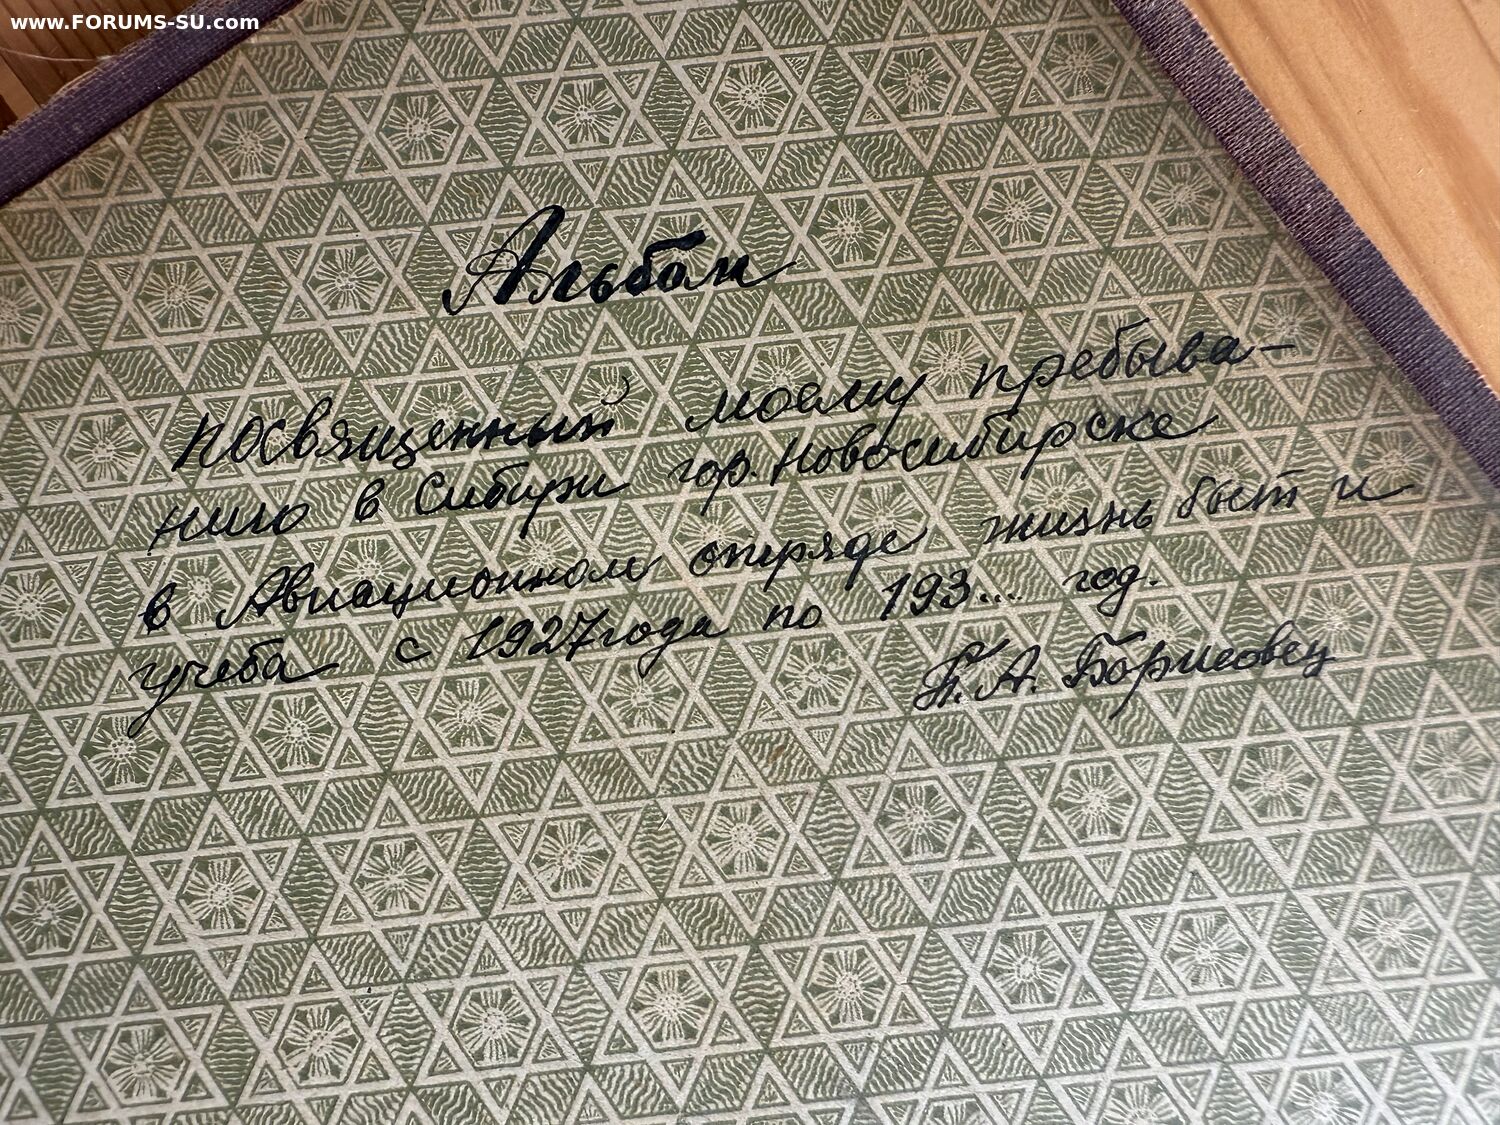 www.FORUMS-SU.com
Альбом
посвященный моему пребыва-
нию в Сибири гор. Новосибирске
в Авиационном отряде жизнь быт и
учеба с 1927 года по 193... год.
А. Борисовец